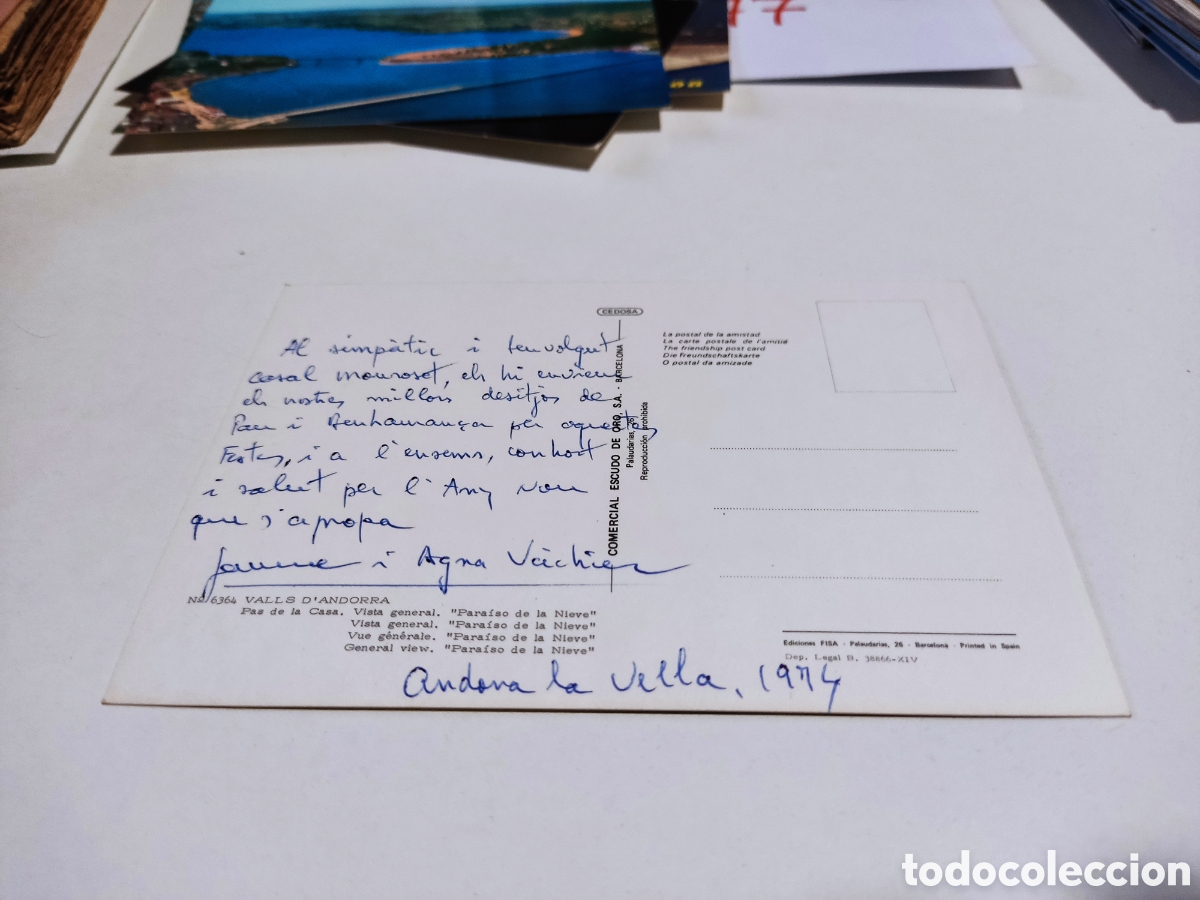 77
CEDOSA
Al simpàtic i benvolgut
casal Monroset, els hi enviem
els nostres millors desitjos de
Pau i Benhamança per aquestes
Festes, i a l'ensems, conhort
i salut per l'Any Nou
que s'apropa
Jaume i Agna
Nº 6364 VALLS D'ANDORRA
Pas de la Casa. Vista general. "Paraíso de la Nieve"
Vista general. "Paraíso de la Nieve"
Vue générale. "Paraíso de la Nieve"
General view. "Paraíso de la Nieve"
Andorra la Vella, 1974
COMERCIAL ESCUDO DE ORO, S.A. - BARCELONA
Palaudarias, 26
Reproducción prohibida
La postal de la amistad
La carte postale de l'amitié
The friendship post card
Die freundschaftskarte
O postal da amizade
Ediciones FISA - Palaudarias, 26 - Barcelona - Printed in Spain
Dep. Legal B. 38866-XIV
todocoleccion